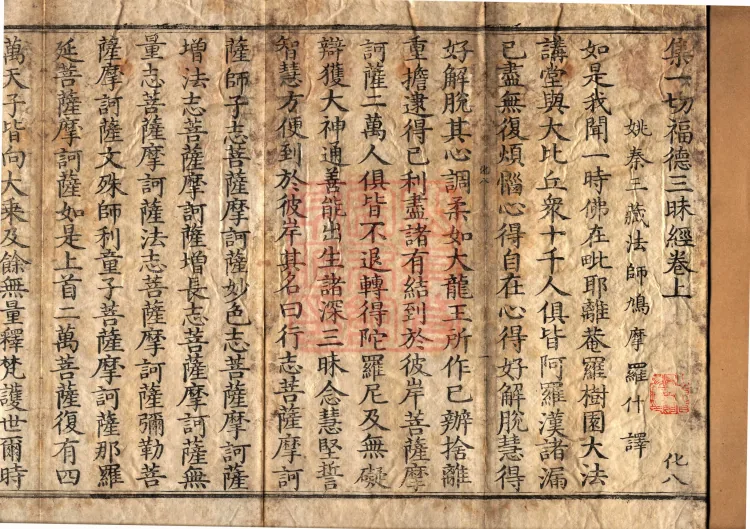 集一切福德三昧經卷上
化八
姚秦三藏法師鳩摩羅什譯
如是我聞一時佛在毗耶離菴羅樹園大法
講堂與大比丘衆十千人俱皆阿羅漢諸漏
已盡無復煩惱心得自在心得好解脫慧得
化八
一
好解脫其心調柔如大龍王所作已辦捨離
重擔逮得己利盡諸有結到於彼岸菩薩摩
訶薩二萬人俱皆不退轉得陀羅尼及無礙
辯獲大神通善能出生諸深三昧念慧堅誓
智慧方便到於彼岸其名曰行志菩薩摩訶
薩師子志菩薩摩訶薩妙色志菩薩摩訶薩
增法志菩薩摩訶薩增長志菩薩摩訶薩無
量志菩薩摩訶薩法志菩薩摩訶薩彌勒菩
薩摩訶薩文殊師利童子菩薩摩訶薩那羅
延菩薩摩訶薩如是上首二萬菩薩復有四
萬天子皆向大乘及餘無量釋梵護世爾時